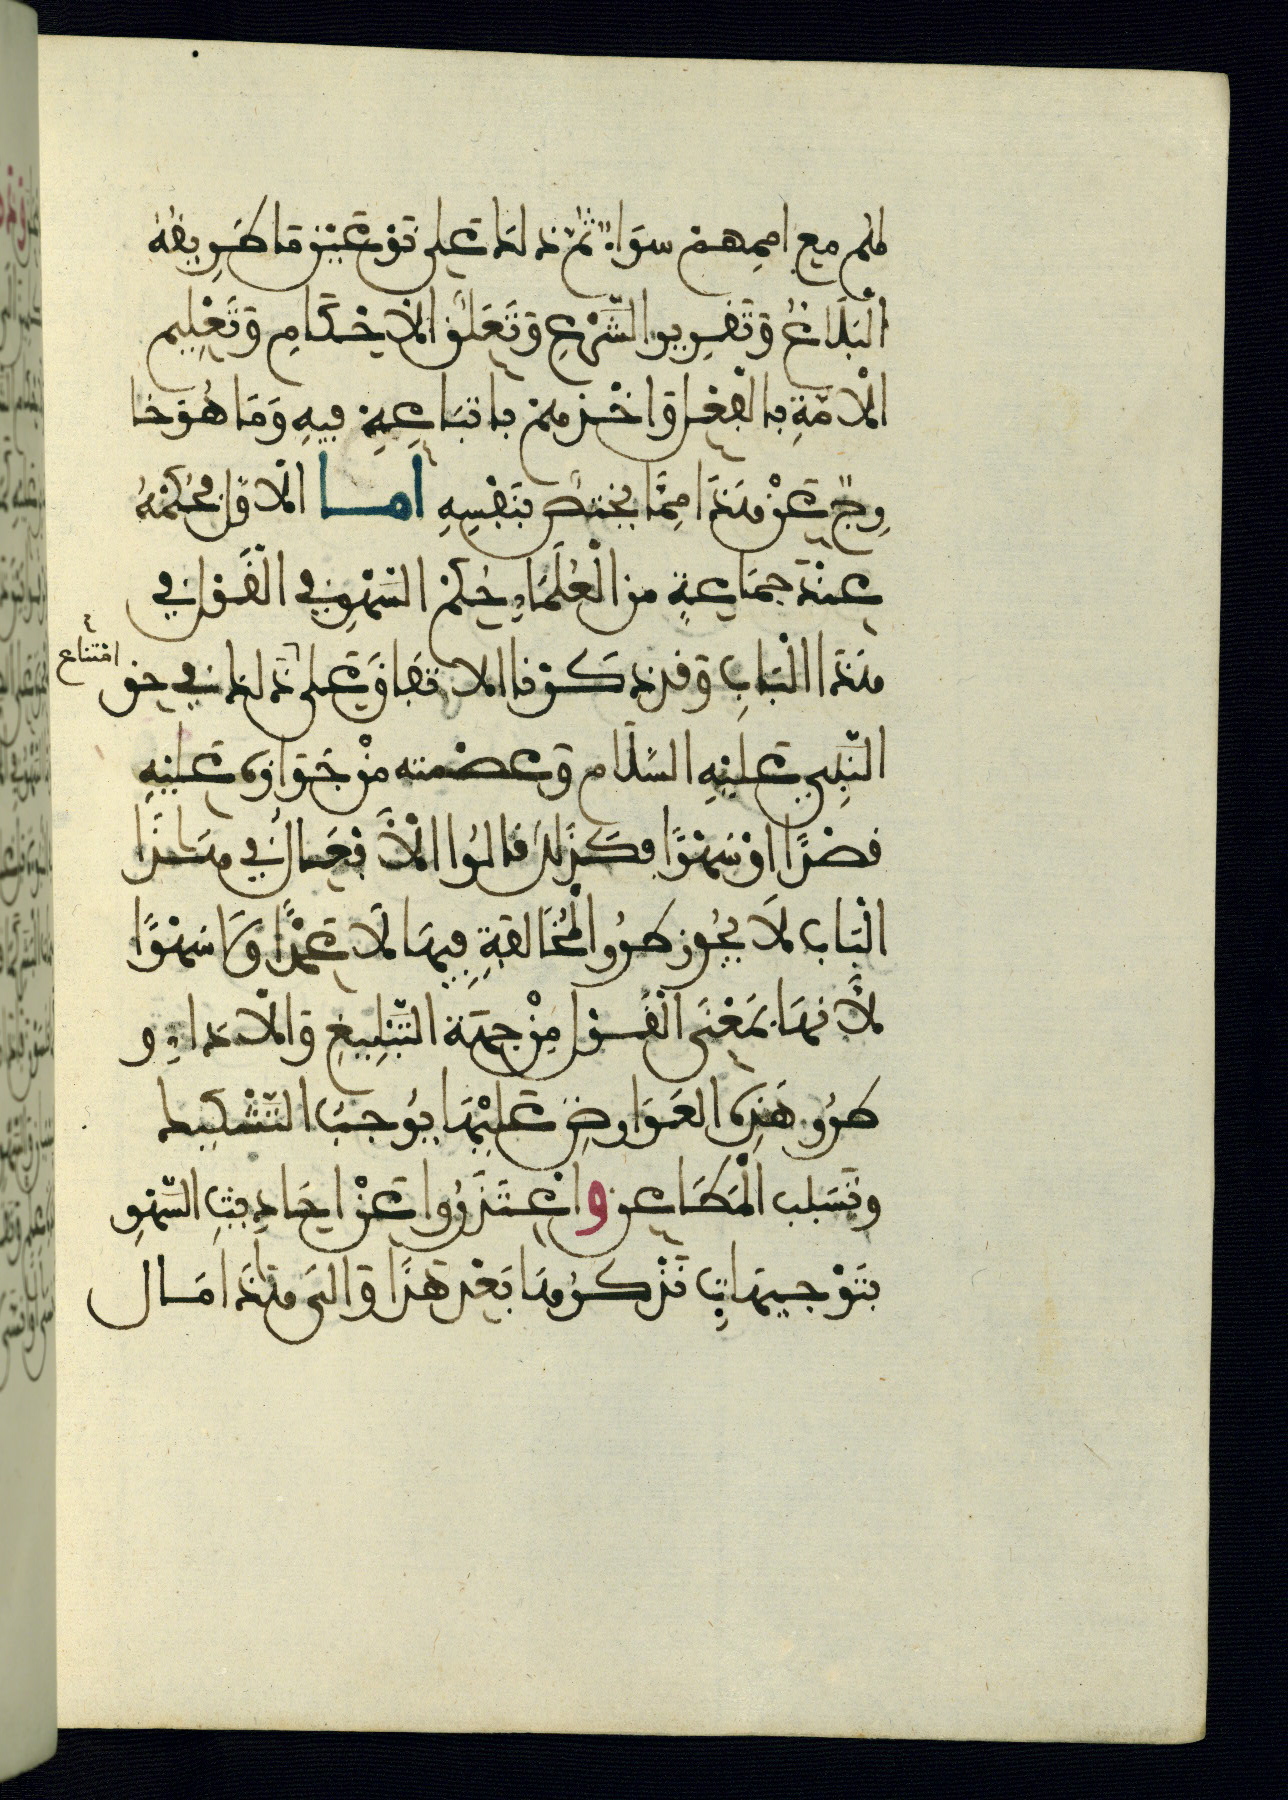 لهم مع اممهم سواء ثم ذلك على نوعين ما طريقه
البلاغ وتقرير الشرع وتعلق الاحكام وتعليم
الامة بالفعل واخذهم باتباعه فيه وما هو خا
رج عن هذا مما يختص بنفسه اما الاول فحكمه
عند جماعة من العلماء حكم السهو في القول في
هذا الباب وقد ذكرنا الاتفاق على ذلك في حق
امتناع
النبي عليه السلام وعصمته من جوازه عليه
قصدًا او سهوًا فكذلك قالوا الافعال في هذا
الباب لا يجوز طرو المخالفة فيها لا عمدًا ولا سهوًا
لانها بمعنى القول من جهة التبليغ والاداء و
طرو هذه العوارض عليها يوجب التشكيك
وتسبب المطاعن واعتذروا عن احاديث السهو
بتوجيهات نذكرها بعد هذا والى هذا مال